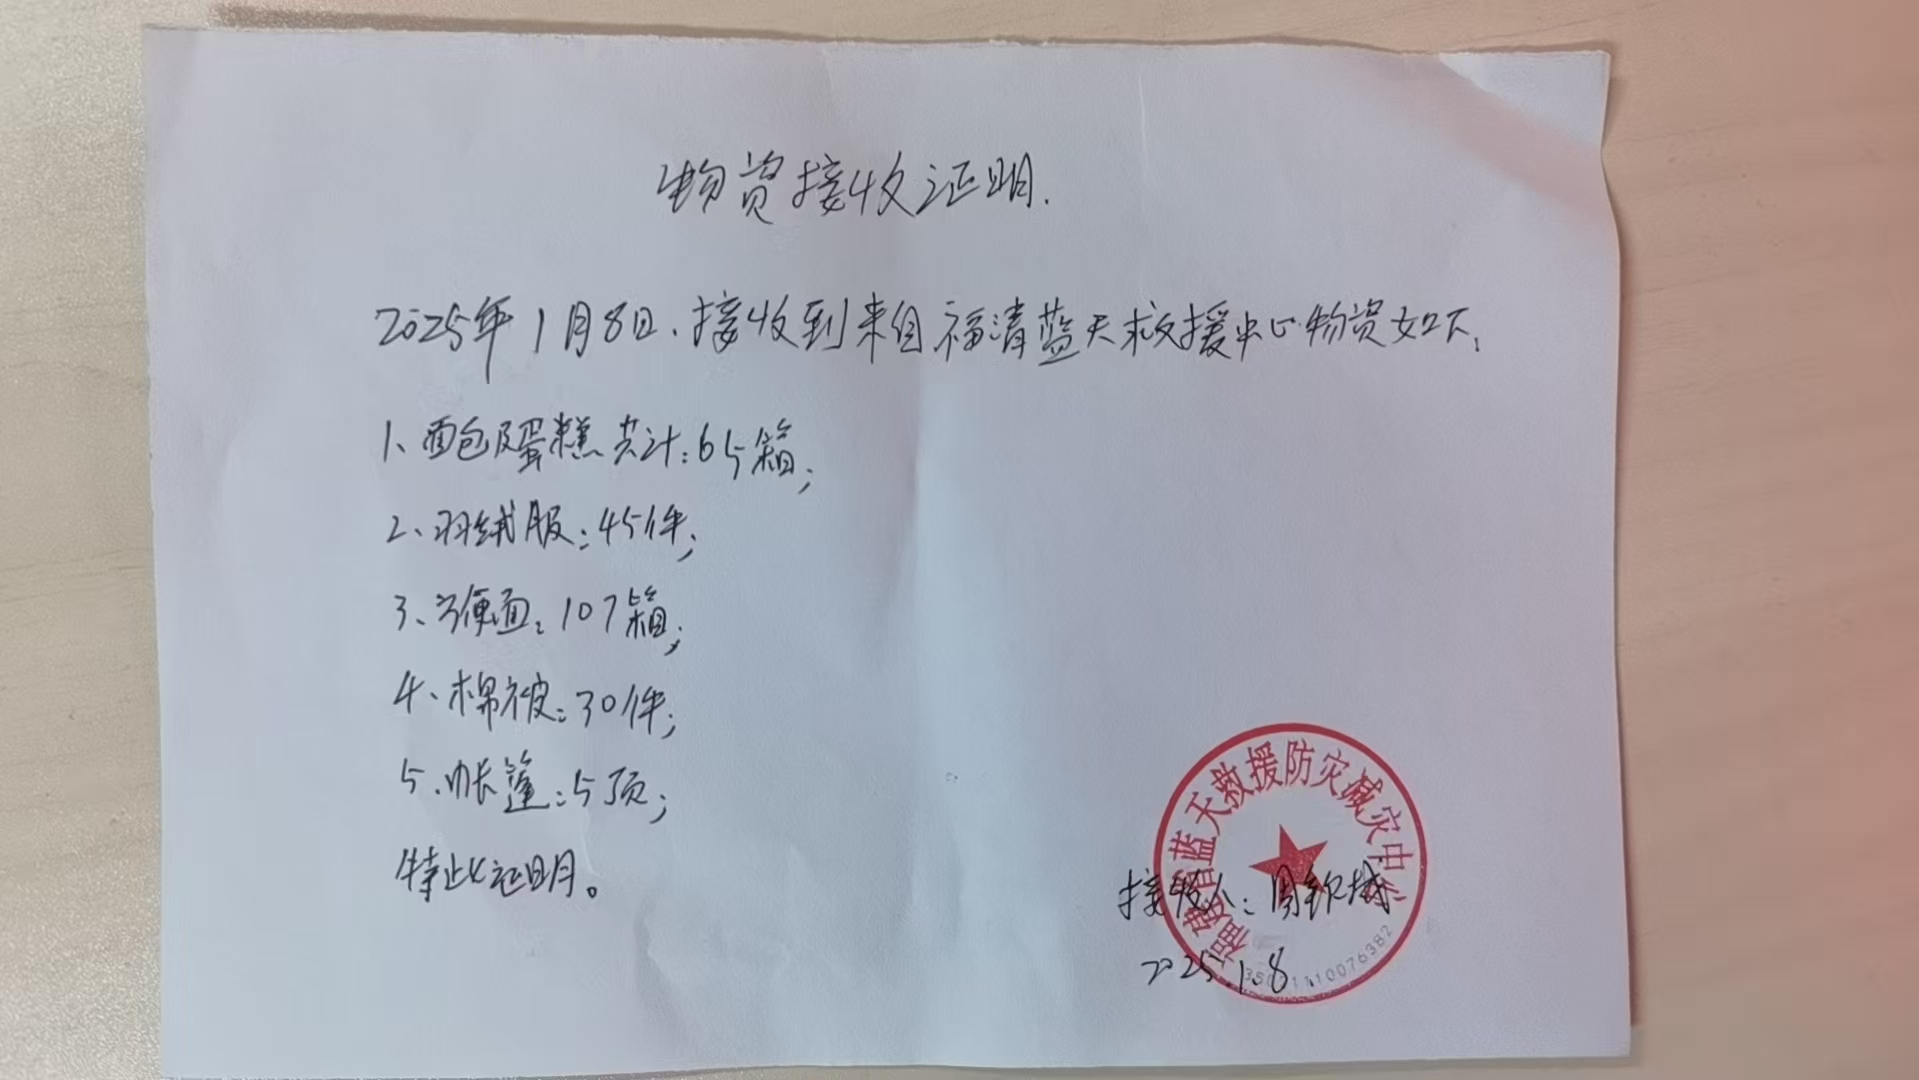 物资接收证明.
2025年1月8日、接收到来自福清蓝天救援中心物资如下:
1、面包及蛋糕共计:65箱;
2、羽绒服:45件;
3、方便面:107箱;
4、棉被:30件;
5、帐篷:5顶;
特此证明。
福建省蓝天救援防灾减灾中心
接收人:周钦
2025.1.8